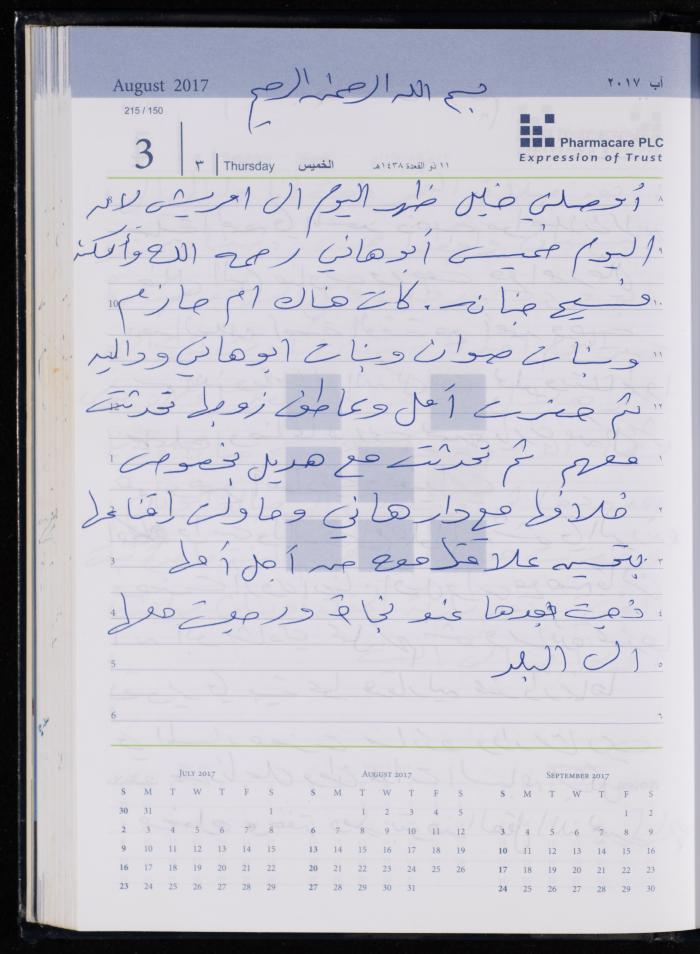 August 2017
آب ٢٠١٧
بسم الله الرحمن الرحيم
215 / 150
3
٣
Thursday
الخميس
١١ ذو القعدة ١٤٣٨هـ
Pharmacare PLC
Expression of Trust
أوصلني خليل ظهر اليوم الى ام ريشي لانه
اليوم خميس أبو هاني رحمه الله وأسكنه
فسيح جنانه. كانت هناك ام حازم
وبنات صوان وبنات ابو هاني وداليه
ثم حضرت أمل وعاطف زوجها تحدثت
معهم ثم تحدثت مع هديل بخصوص
خلافها مع دار هاني وحاولت اقناعها
بتحسين علاقتها معه من أجل أمها
ذهبت بعدها عند نجاة ورجعت معها
الى البلد
٨
٩
10
١٠
١١
12
١٢
1
١
٢
3
٣
4
٤
5
٥
6
٦
July 2017
S M T W T F S
30 31 1
2 3 4 5 6 7 8
9 10 11 12 13 14 15
16 17 18 19 20 21 22
23 24 25 26 27 28 29
August 2017
S M T W T F S
1 2 3 4 5
6 7 8 9 10 11 12
13 14 15 16 17 18 19
20 21 22 23 24 25 26
27 28 29 30 31
September 2017
S M T W T F S
1 2
3 4 5 6 7 8 9
10 11 12 13 14 15 16
17 18 19 20 21 22 23
24 25 26 27 28 29 30